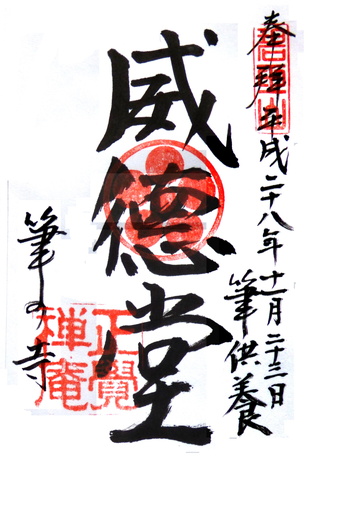 奉拜 平成二十八年十一月二十三日
筆供養
威德堂
筆の寺
正覺
禅庵